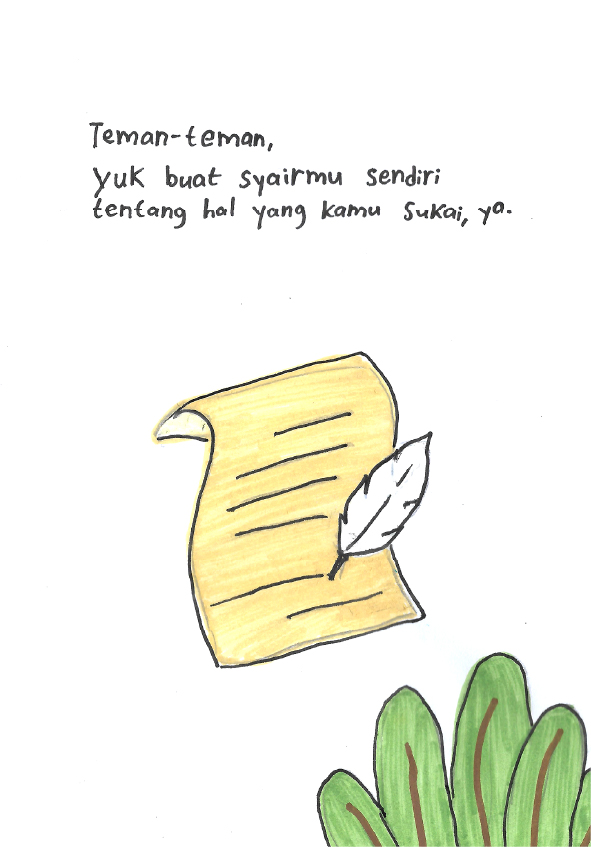 Teman-teman,
yuk buat syairmu sendiri
tentang hal yang kamu sukai, ya.